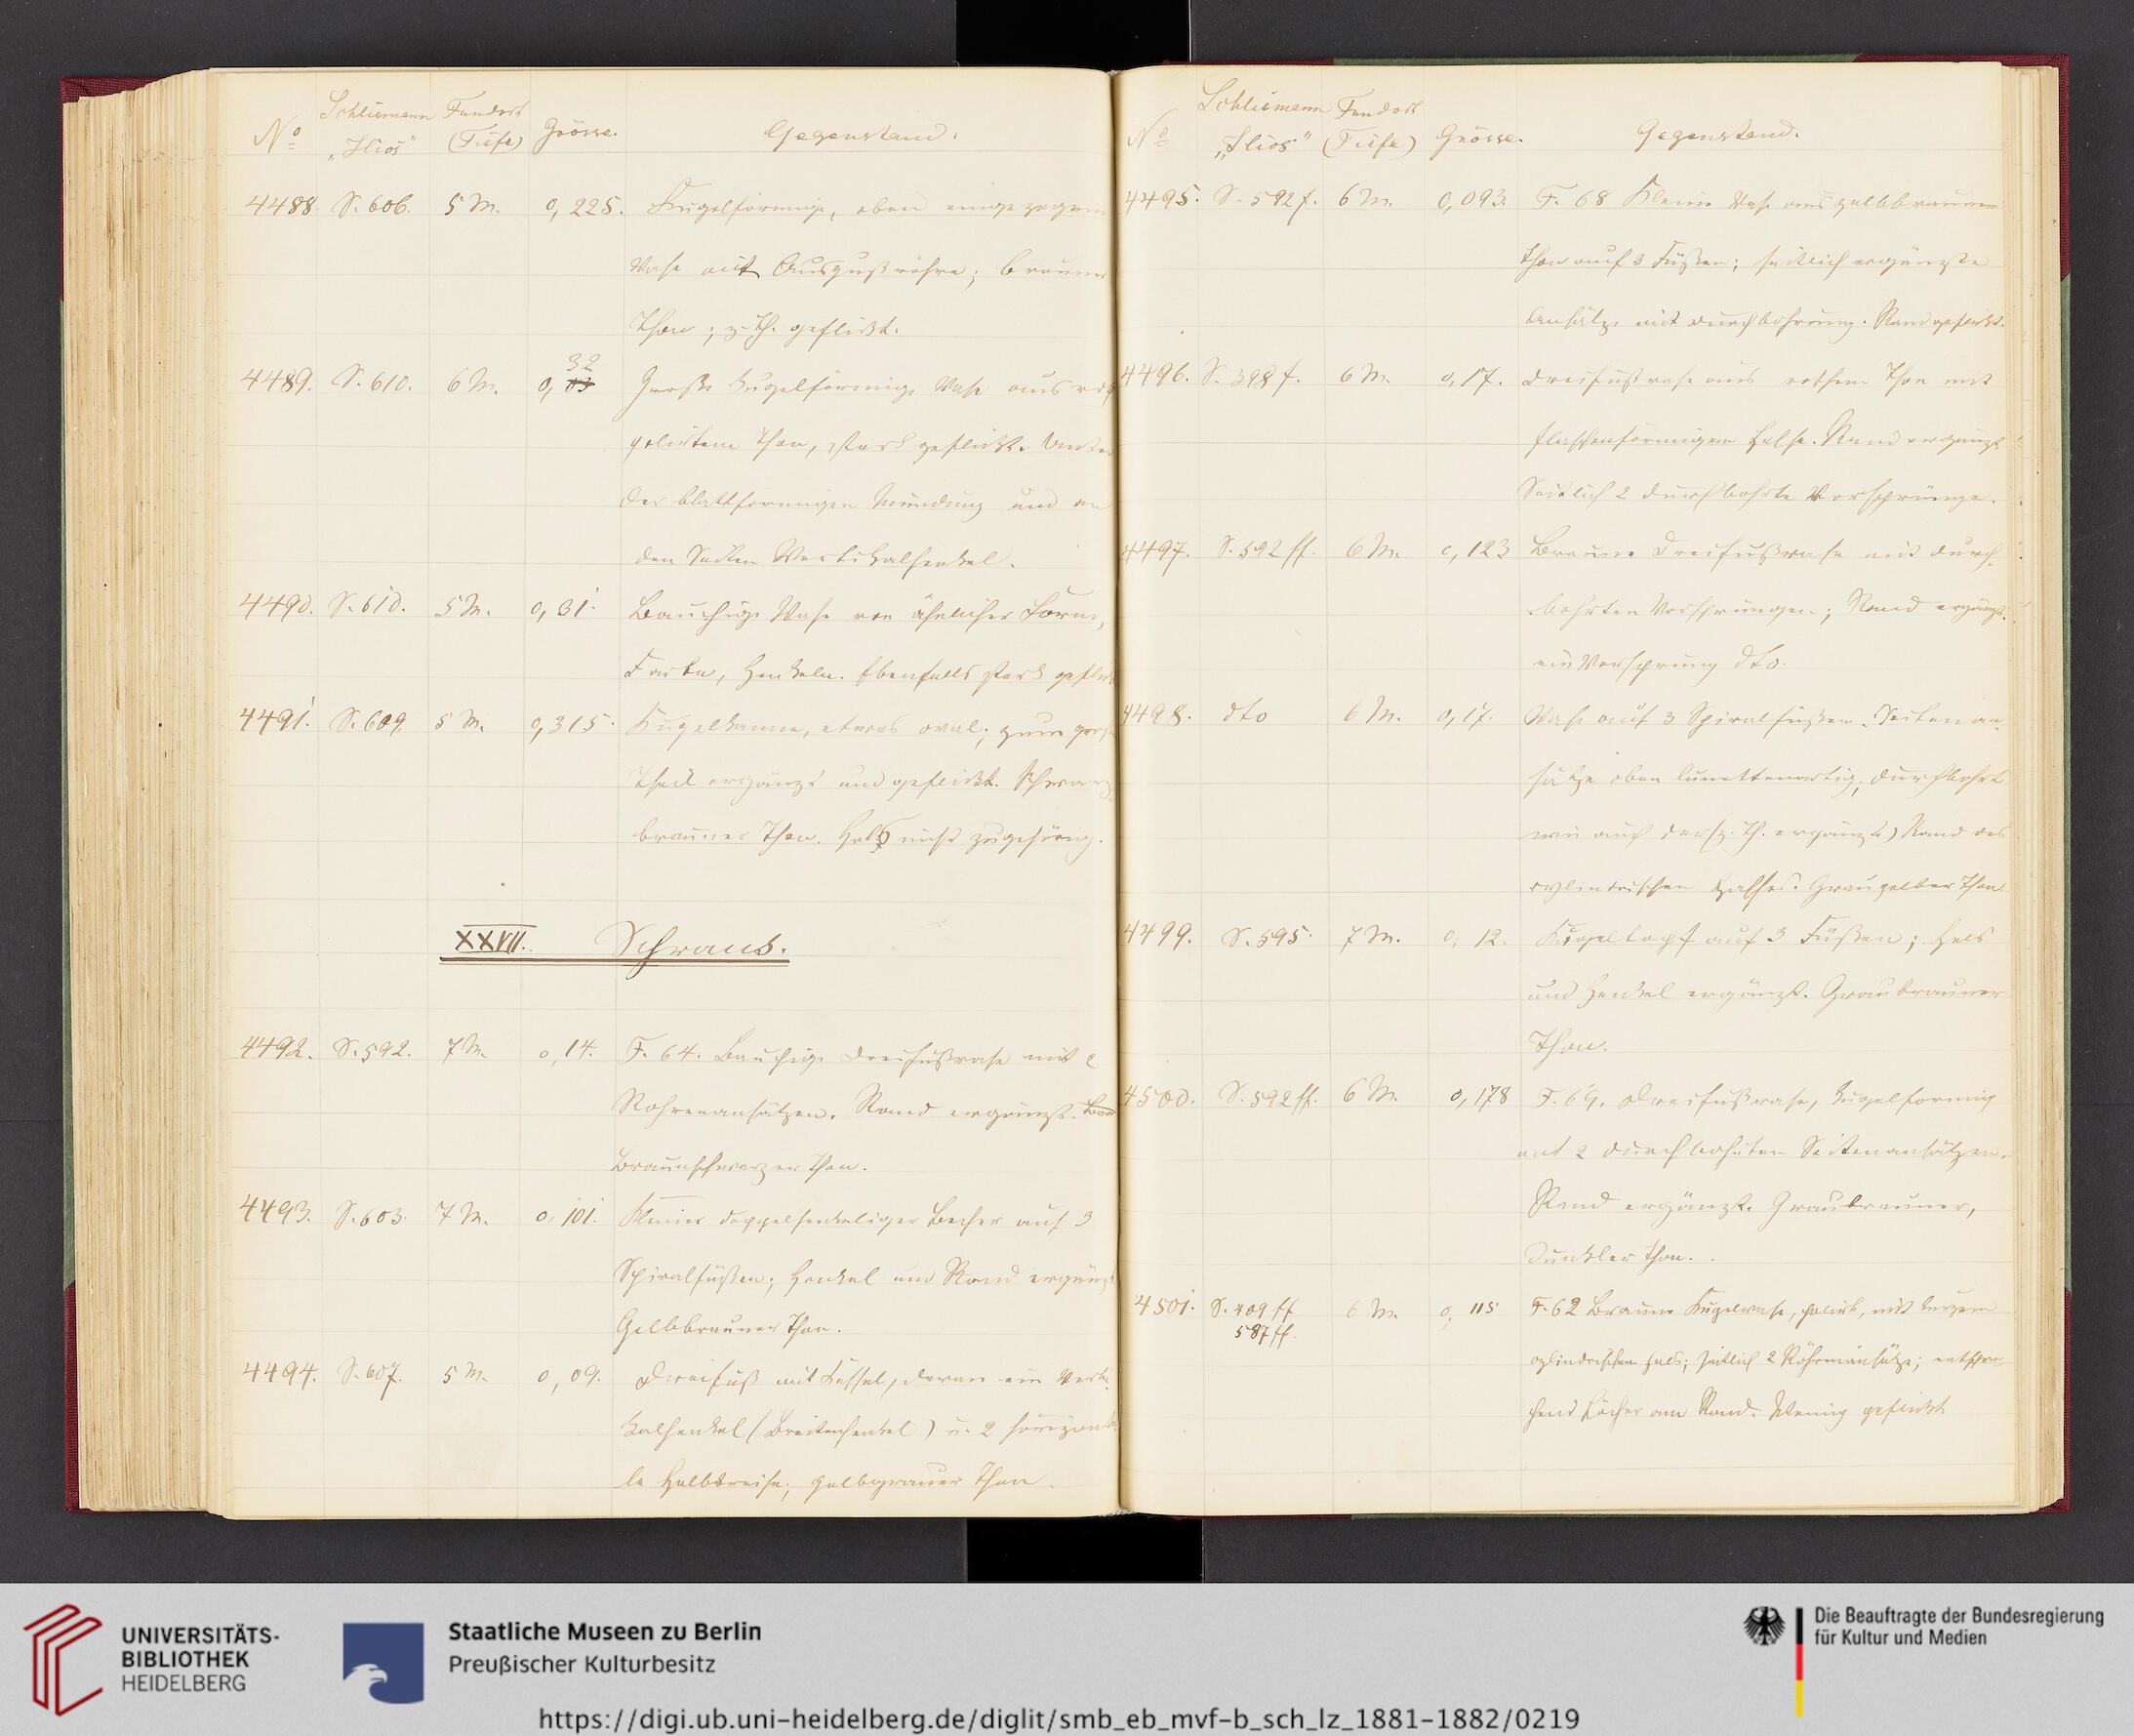 No Schliemann „Ilios" Fundort (Tiefe) Grösse. Gegenstand.
4488. S. 606. 5 M. 0,225. Kugelförmige, oben eingezogene
Vase mit Ausgußröhre; brauner
Thon; z. Th. geflickt.
4489. S. 610. 6 M. 0,32 Große kugelförmige Vase aus roth
polirtem Thon, stark geflickt. Unter
der blattförmigen Mündung und an
den Seiten Vertikalhenkel.
4490. S. 610. 5 M. 0,31. Bauchige Vase von ähnlicher Form,
Farbe, Henkeln. Ebenfalls stark geflickt
4491. S. 609. 5 M. 0,315. Kugelkanne, etwas oval; zum groß
Theil ergänzt und geflickt. Schwarz
brauner Thon. Hals nicht zugehörig.
XXVII. Schrank.
4492. S. 592. 7 M. 0,14. F. 64. Bauchige Dreifußvase mit 2
Röhrenansätzen. Rand ergänzt.
Braunschwarzer Thon.
4493. S. 603. 7 M. 0,101. Kleiner doppelhenkeliger Becher auf 3
Spiralfüßen; Henkel und Rand ergänzt
Gelbbrauner Thon.
4494. S. 607. 5 M. 0,09. Dreifuß mit Kessel, daran ein Verti-
kalhenkel (Breitenhenkel) u. 2 horizonta-
le Halbkreise; gelbgrauer Thon.
No Schliemann „Ilios" Fundort (Tiefe) Grösse. Gegenstand.
4495. S. 592 f. 6 M. 0,093. F. 68 Kleine Vase aus gelbbraunem
Thon auf 3 Füßen; seitlich ergänzte
Ansätze mit Durchbohrung. Rand geflickt.
4496. S. 398 f. 6 M. 0,17. Dreifußvase aus rothem Thon mit
flaschenförmigem Halse. Rand ergänzt
Seitlich 2 durchbohrte Vorsprünge.
4497. S. 592 ff. 6 M. 0,123 Braune Dreifußvase mit durch-
bohrten Vorsprüngen; Rand ergänzt.
ein Vorsprung dto.
4498. dto 6 M. 0,17. Vase auf 3 Spiralfüßen. Seitenan-
sätze oben lunettenartig; durchbohrt
wie auch der (z. Th. ergänzte) Rand des
cylindrischen Halses. Graugelber Thon
4499. S. 595. 7 M. 0,12. Kugeltopf auf 3 Füßen; Hals
und Henkel ergänzt. Graubrauner
Thon.
4500. S. 592 ff. 6 M. 0,178 F. 69. Dreifußvase, kugelförmig
mit 2 durchbohrten Seitenansätzen.
Rand ergänzt. Graubrauner,
dunkler Thon.
4501. S. 409 ff 6 M. 0,115 F. 62 Braune Kugelvase, polirt, mit kurzem
587 ff. cylindrischem Hals; seitlich 2 Röhrenansätze; entspre-
chend Löcher am Rand. Wenig geflickt
UNIVERSITÄTS-
BIBLIOTHEK
HEIDELBERG
Staatliche Museen zu Berlin
Preußischer Kulturbesitz
Die Beauftragte der Bundesregierung
für Kultur und Medien
https://digi.ub.uni-heidelberg.de/diglit/smb_eb_mvf-b_sch_lz_1881-1882/0219